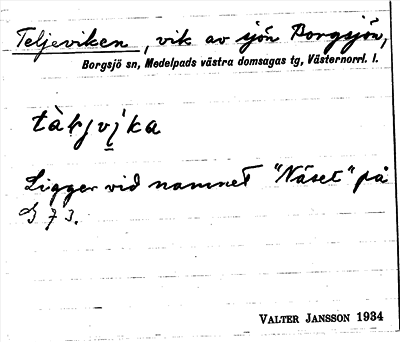 Teljeviken, vik av sjön Borgsjön,
Borgsjö sn, Medelpads västra domsagas tg, Västernorrl. l.
Ligger vid namnet "Näset" på
G 73.
VALTER JANSSON 1934